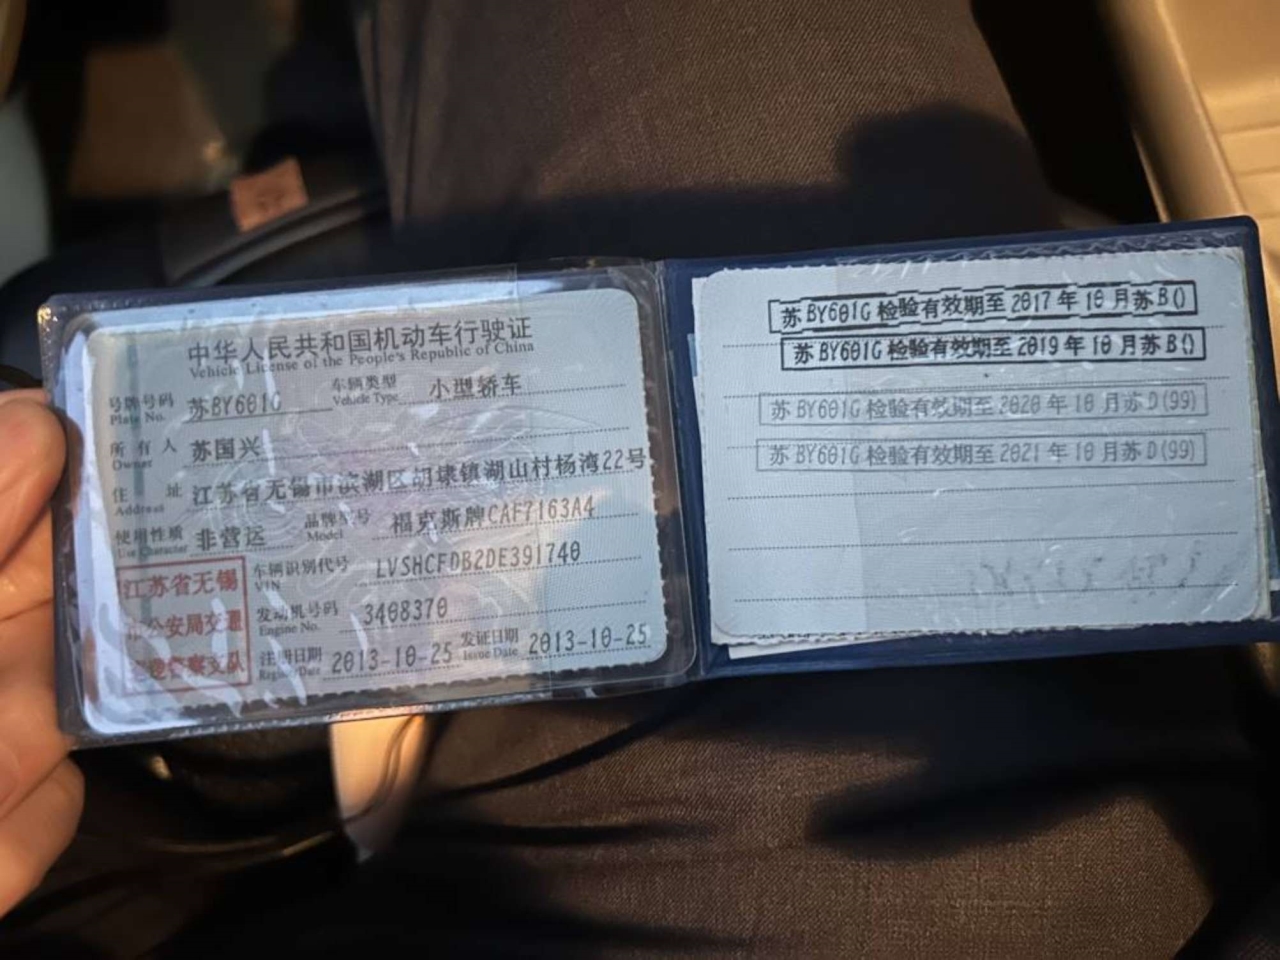 中华人民共和国机动车行驶证
Vehicle License of the People's Republic of China
号牌号码 苏BY601G 车辆类型 小型轿车
Plate No. Vehicle Type
所有人 苏国兴
Owner
住址 江苏省无锡市滨湖区胡埭镇湖山村杨湾22号
Address
使用性质 非营运 品牌型号 福克斯牌CAF7163A4
Use Character Model
车辆识别代号 LVSHCFDB2DE391740
VIN
发动机号码 3408370
Engine No.
注册日期 2013-10-25 发证日期 2013-10-25
Register Date Issue Date
江苏省无锡
市公安局交通
巡逻警察支队
苏BY601G 检验有效期至 2017 年 10 月苏B()
苏BY601G 检验有效期至 2019 年 10 月苏B()
苏BY601G 检验有效期至 2020 年 10 月苏D(99)
苏BY601G 检验有效期至 2021 年 10 月苏D(99)